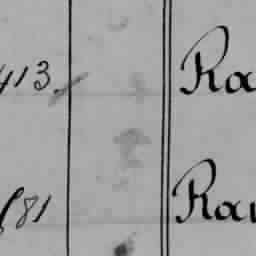 413. Ra
81 Rau